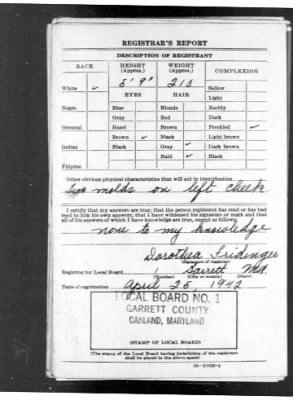 REGISTRAR'S REPORT
DESCRIPTION OF REGISTRANT
RACE HEIGHT (Approx.) WEIGHT (Approx.) COMPLEXION
5' 9" 210
White ✓ EYES HAIR Sallow
Light
Negro Blue Blonde Ruddy
Gray Red Dark
Oriental Hazel Brown Freckled ✓
Brown ✓ Black Light brown
Indian Black Gray ✓ Dark brown
Bald ✓ Black
Filipino
Other obvious physical characteristics that will aid in identification
two molds on left cheek
I certify that my answers are true; that the person registered has read or has had
read to him his own answers; that I have witnessed his signature or mark and that
all of his answers of which I have knowledge are true, except as follows:
none to my knowledge
Dorothea Fridinger
(Signature of registrar)
Registrar for Local Board Garrett Md.
(Number) (City or county) (State)
Date of registration April 25, 1942
LOCAL BOARD NO. 1
GARRETT COUNTY
OAKLAND, MARYLAND
(STAMP OF LOCAL BOARD)
(The stamp of the Local Board having jurisdiction of the registrant
shall be placed in the above space)